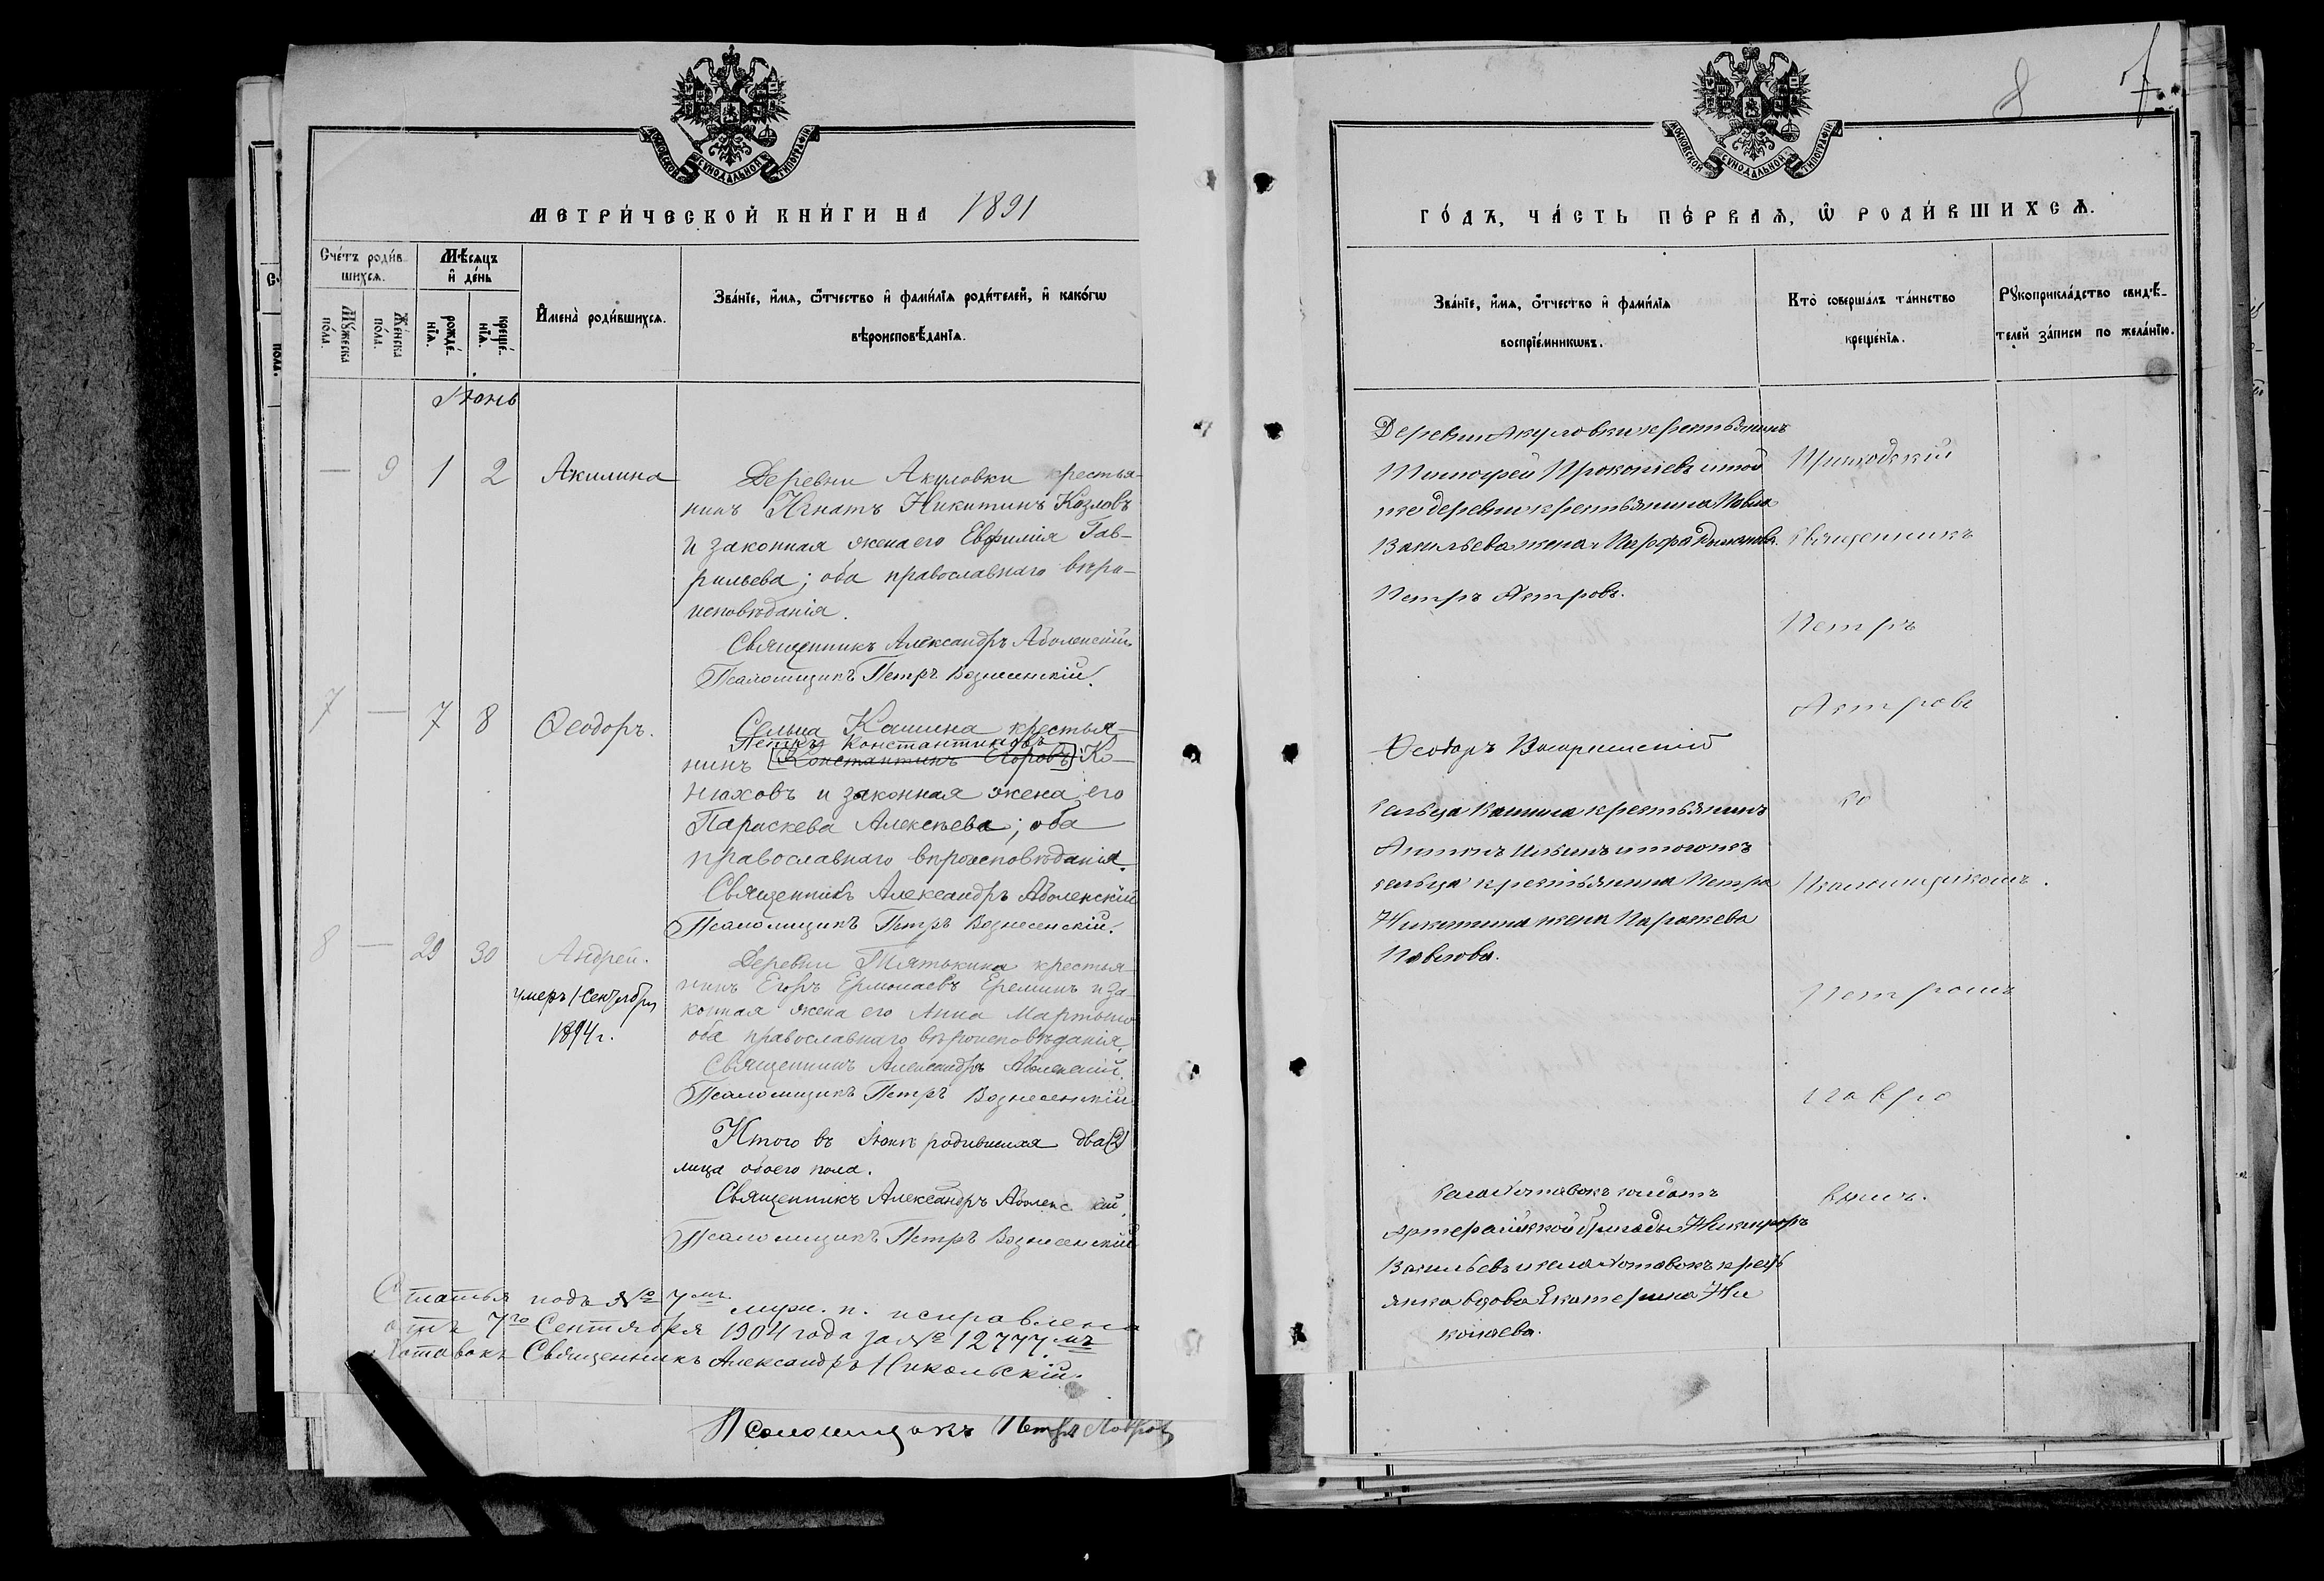 МОСКОВСКОЙ СѴНОДАЛЬНОЙ ТИПОГРАФІИ
МЕТРИ́ЧЕСКОЙ КНИ́ГИ НА 1891
Сче́тъ роди́в-
шихсѧ.
Мѣ́сяцъ
и҆ де́нь
Мꙋ́жеска
по́ла.
Же́нска
по́ла.
рожде́-
нїѧ.
креще́-
нїѧ.
И҆мена̀ роди́вшихсѧ.
Зва́нїе, и҆́мѧ, ѻ҆́тчество и҆ фами́лїѧ роди́телей, и҆ како́гѡ
вѣроисповѣ́данїѧ.
Іюнь
— 9 1 2 Акилина
Деревни Акуловки крестья-
нинъ Игнатъ Никитинъ Козловъ
и законная жена его Евфимія Гав-
рильева; оба православнаго вѣро-
исповѣданія.
Священникъ Александръ Аболенскій
Псаломщикъ Петръ Вознесенскій.
7 — 7 8 Ѳеодоръ.
Сельца Кашина крестья-
Петръ Константиновъ
нинъ Константинъ Егоровъ Ко-
нюховъ и законная жена его
Параскева Алексѣева; оба
православнаго вѣроисповѣданія.
Священникъ Александръ Аболенскій
Псаломщикъ Петръ Вознесенскій.
8 — 29 30 Андрей.
умеръ 1 Сентября
1894 г.
Деревни Тлятькина крестья-
нинъ Егоръ Ермолаевъ Ереминъ и за-
конная жена его Анна Мартыно
оба православнаго вѣроисповѣданія.
Священникъ Александръ Аболенскій.
Псаломщикъ Петръ Вознесенскій
Итого въ Іюнѣ родившихся два (2)
лица обоего пола.
Священникъ Александръ Аболенскій.
Псаломщикъ Петръ Вознесенскій
Статья подъ № 7мъ муж. п. исправлена
отъ 7го Сентября 1904 года за № 12777.мъ
Священникъ Александръ Никольскій.
Псаломщикъ Петръ Лавровъ
8
МОСКОВСКОЙ СѴНОДАЛЬНОЙ ТИПОГРАФІИ
ГО́ДЪ, ЧА́СТЬ ПЕ́РВАѦ, Ѡ҆ РОДИ́ВШИХСѦ.
Зва́нїе, и҆́мѧ, ѻ҆́тчество и҆ фами́лїѧ
воспрїе́мникѡвъ.
Кто̀ соверша́лъ та́инство
креще́нїѧ.
Рꙋкоприкла́дство свидѣ́-
телей за́писи по жела́нїю.
Деревни Акуловки крестьянинъ
Тимофей Прокопіевъ и той
же деревни крестьянина Павла
Васильева жена Марфа
Петръ Астровъ.
Приходскій
Священникъ
Петръ
Астровъ
Ѳеодоръ
сельца Кашина крестьянинъ
Антонъ Ильинъ и того жъ
сельца крестьянина Петра
Никитина жена Параскева
Павлова.
со
Псаломщикомъ.
Петромъ
Лавро
вымъ.
села Хотавокъ солдатъ
бригады Никифоръ
Васильевъ и села Хотавокъ кресть
янка вдова Екатерина Ни
колаева.